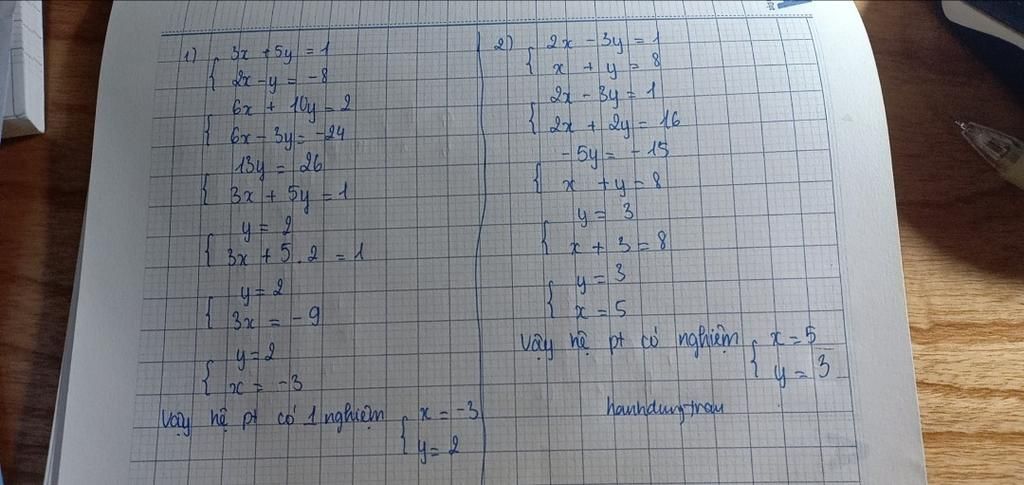 1) { 3x + 5y = 1
2x - y = -8
{ 6x + 10y = 2
6x - 3y = -24
{ 13y = 26
3x + 5y = 1
{ y = 2
3x + 5 . 2 = 1
{ y = 2
3x = -9
{ y = 2
x = -3
Vậy hệ pt có 1 nghiệm { x = -3
y = 2
2) { 2x - 3y = 1
x + y = 8
{ 2x - 3y = 1
2x + 2y = 16
{ -5y = -15
x + y = 8
{ y = 3
x + 3 = 8
{ y = 3
x = 5
Vậy hệ pt có nghiệm { x = 5
y = 3
hanhdungtran